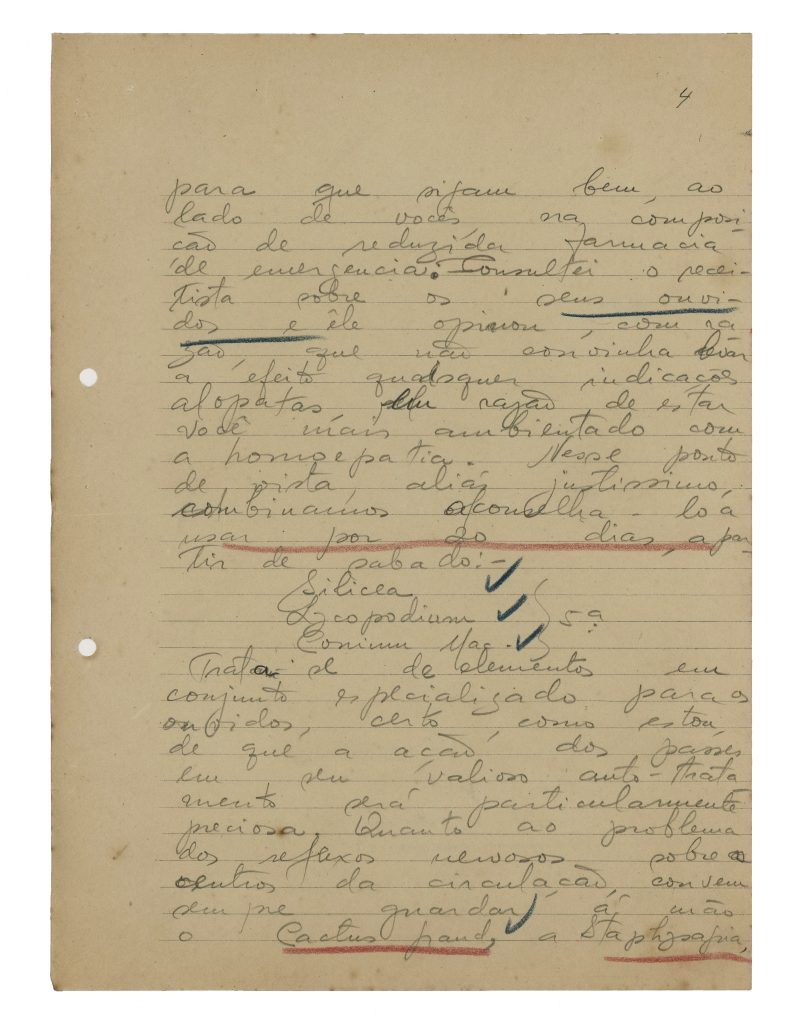 4
para que sijam bem, ao
lado de vocês na composi-
cão de reduzida farmacia
de emergencia. Consultei o recei-
tista sobre os seus ouvi-
dos e êle opinou, com ra
zão, que não convinha levar
a efeito quaisquer indicacões
alopatas em razão de estar
você mais ambientado com
a homoepatia. Nesse ponto
de vista, aliás justissimo,
combinamos aconselha-lo á
usar por 20 dias, a par-
tir de sabado:-
Silicea
Lycopodium } 5ª
Conium Mac.
Trata-se de elementos em
conjunto especializado para os
ouvidos, certo, como estou
de que a acão dos passes
em seu valioso auto-trata
mento será particularmente
preciosa. Quanto ao problema
dos reflexos nervosos sobre o
centros da circulacão, convem
sempre guardar á mão
o Cactus grand, a Staphysagria,